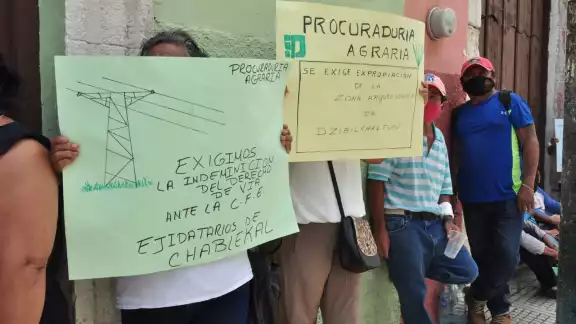 PROCURADURIA
AGRARIA
EXIGIMOS
LA INDEMINICION
DEL DERECHO
DE VIA
ANTE LA C.F.E
EJIDATARIOS DE
CHABLEKAL
PROCURADURIA
AGRARIA
SE EXIGE EXPROPIACIÓN
DE LA
ZONA ARQUEOLOGICA
DE
DZIBILCHALTUN